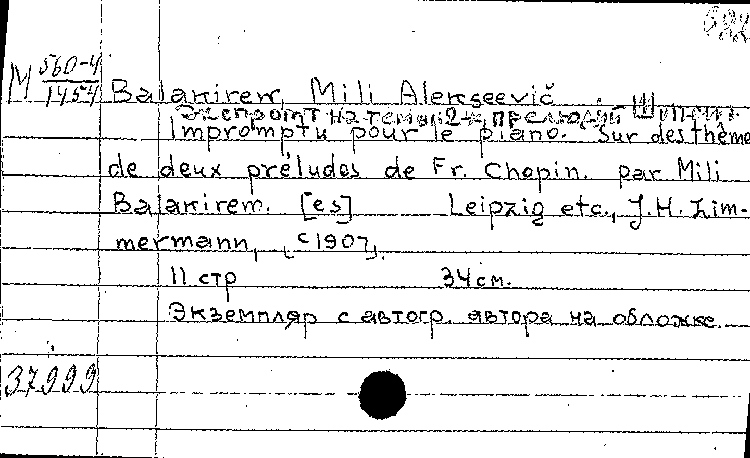 622
М 560-4/1454
Balakirew, Mili Alekseevič
Экспромт на темы 2-х прелюдий Шопена.
Impromptu pour le piano. Sur des thème
de deux préludes de Fr. Chopin. par Mili
Balakirem. [es] Leipzig etc., J.H. Zim-
mermann, [c1907].
11 стр 34 см.
Экземпляр с автогр. автора на обложке.
37999